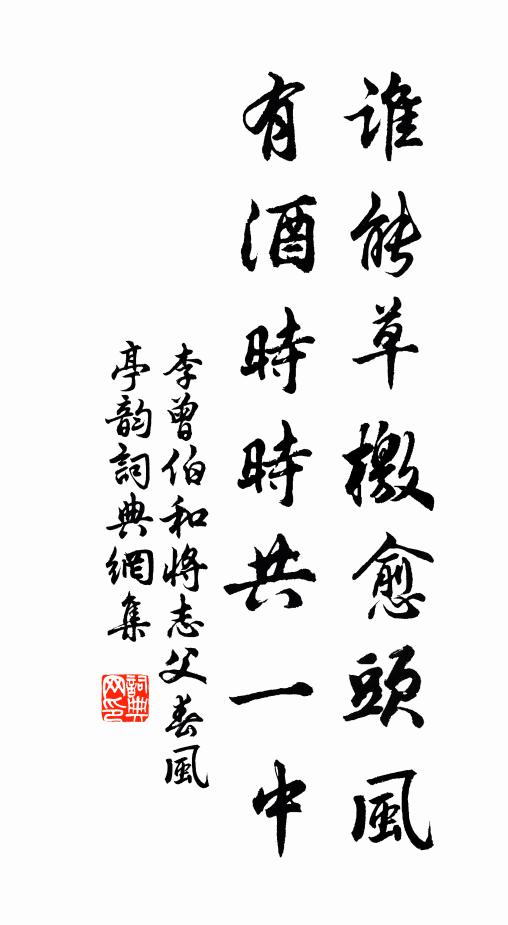 誰能草檄愈頭風
有酒時時共一中
李曾伯和將志父春風
亭韵詞典網集
詞典
网印